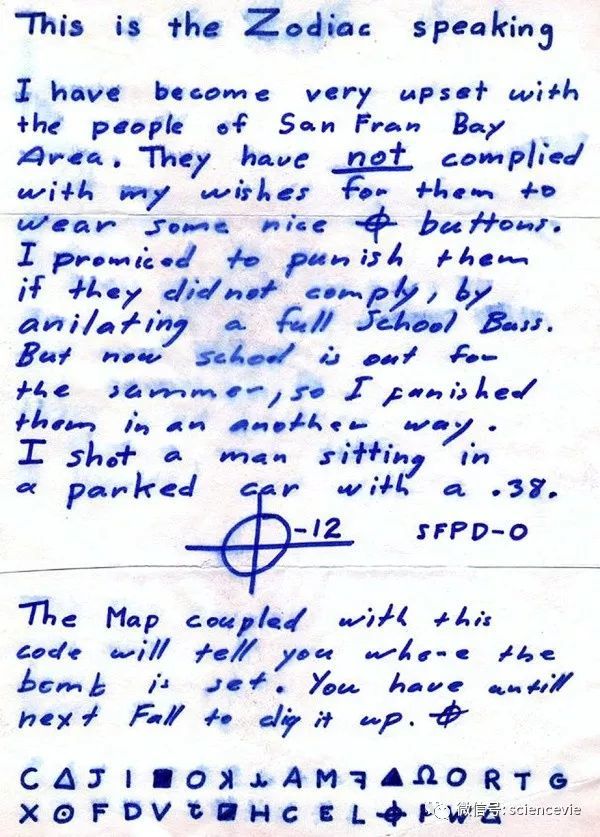 This is the Zodiac speaking
I have become very upset with
the people of San Fran Bay
Area. They have not complied
with my wishes for them to
wear some nice ⌖ buttons.
I promiced to punish them
if they did not comply, by
anilating a full School Buss.
But now school is out for
the summer, so I punished
them in an another way.
I shot a man sitting in
a parked car with a .38.
⌖-12 SFPD-0
The Map coupled with this
code will tell you where the
bomb is set. You have untill
next Fall to dig it up. ⌖
C Δ J I ■ O ꓘ ⅄ A M ꟻ ▲ Ω O R T G
X ⊙ F D V Ɛ ◪ H C E L ⌖ P W Δ
微信号: sciencevie